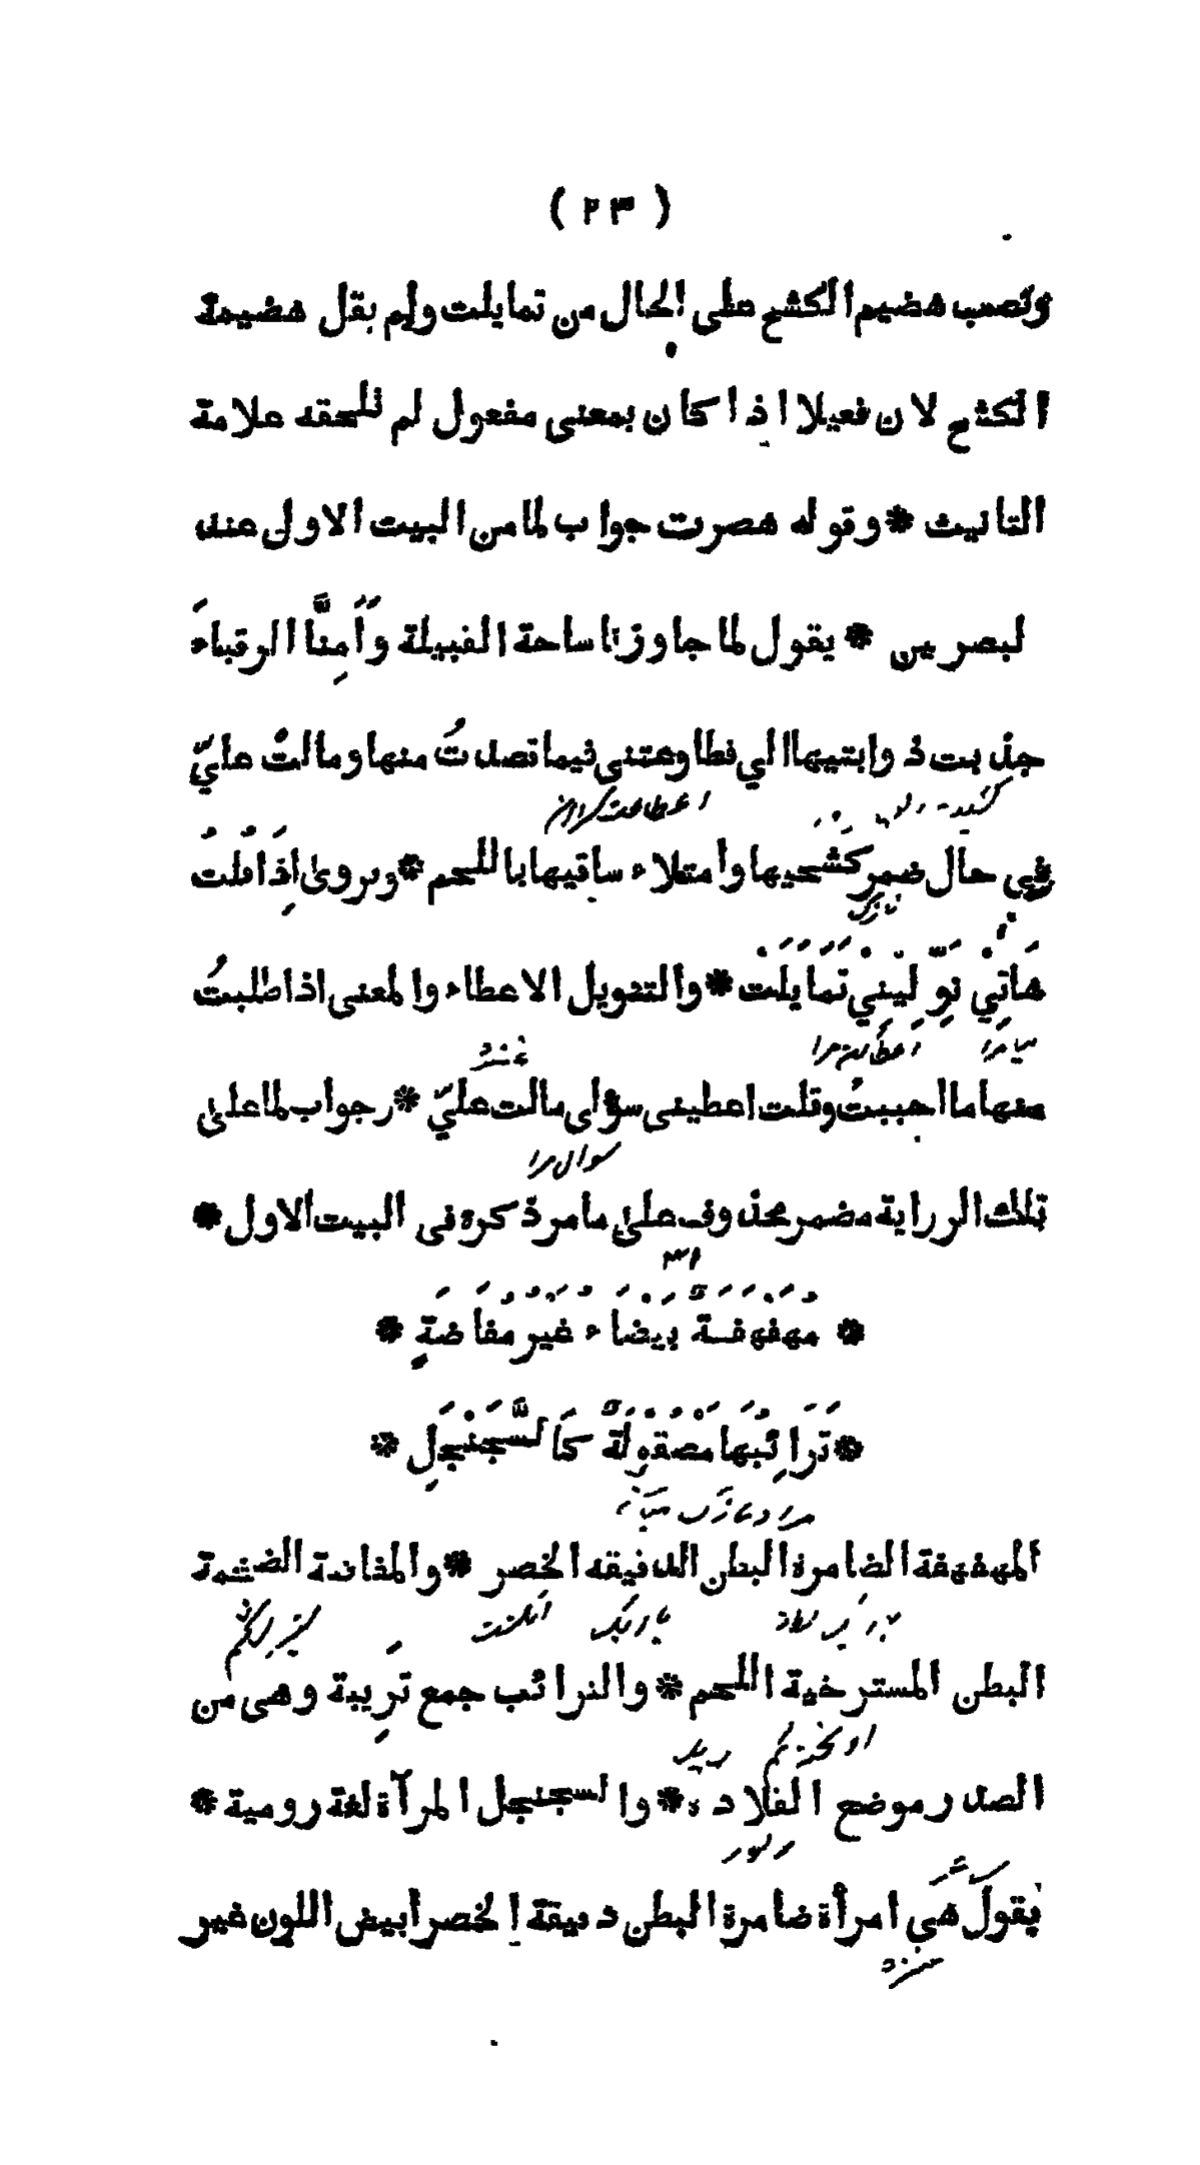 ( ٢٣ )
ونصب هضيم الكشح على الحال من تمايلت ولم يقل هضيمة
الكشح لان فعيلا اذا كان بمعنى مفعول لم تلحقه علامة
التانيث * وقوله هصرت جواب لما من البيت الاول عند
البصريين * يقول لما جاوزنا ساحة القبيلة وَأَمِنَّا الرقباءَ
جذبت ذوابتيها الي فطاوعتني فيما قصدتُ منها ومالتْ عليّ
في حال ضمر كشحيها وامتلاء ساقيها باللحم * ويروى اِذَا قلتُ
هَاتِيْ نَوِّلِيْنِيْ تَمَايَلَتْ * والتنويل الاعطاء والمعنى اذا طلبتُ
منها ما احببتُ وقلت اعطيني سؤالي مالت عليّ * وجواب لما على
تلك الرواية مضمر محذوف على ما مر ذكره في البيت الاول *
* مُهَفْهَفَةٌ بَيْضَاءُ غَيْرُ مُفَاضَةٍ *
* تَرَائِبُهَا مَصْقُولَةٌ كَالسَّجَنْجَلِ *
المهفهفة الضامرة البطن الدقيقه الخصر * والمفاضة الضخمة
البطن المسترخية اللحم * والترائب جمع تَرِيبة وهي من
الصدر موضع القلادة * والسجنجل المرآة لغة رومية *
يقول هي امرأة ضامرة البطن دقيقة الخصر ابيض اللون غير